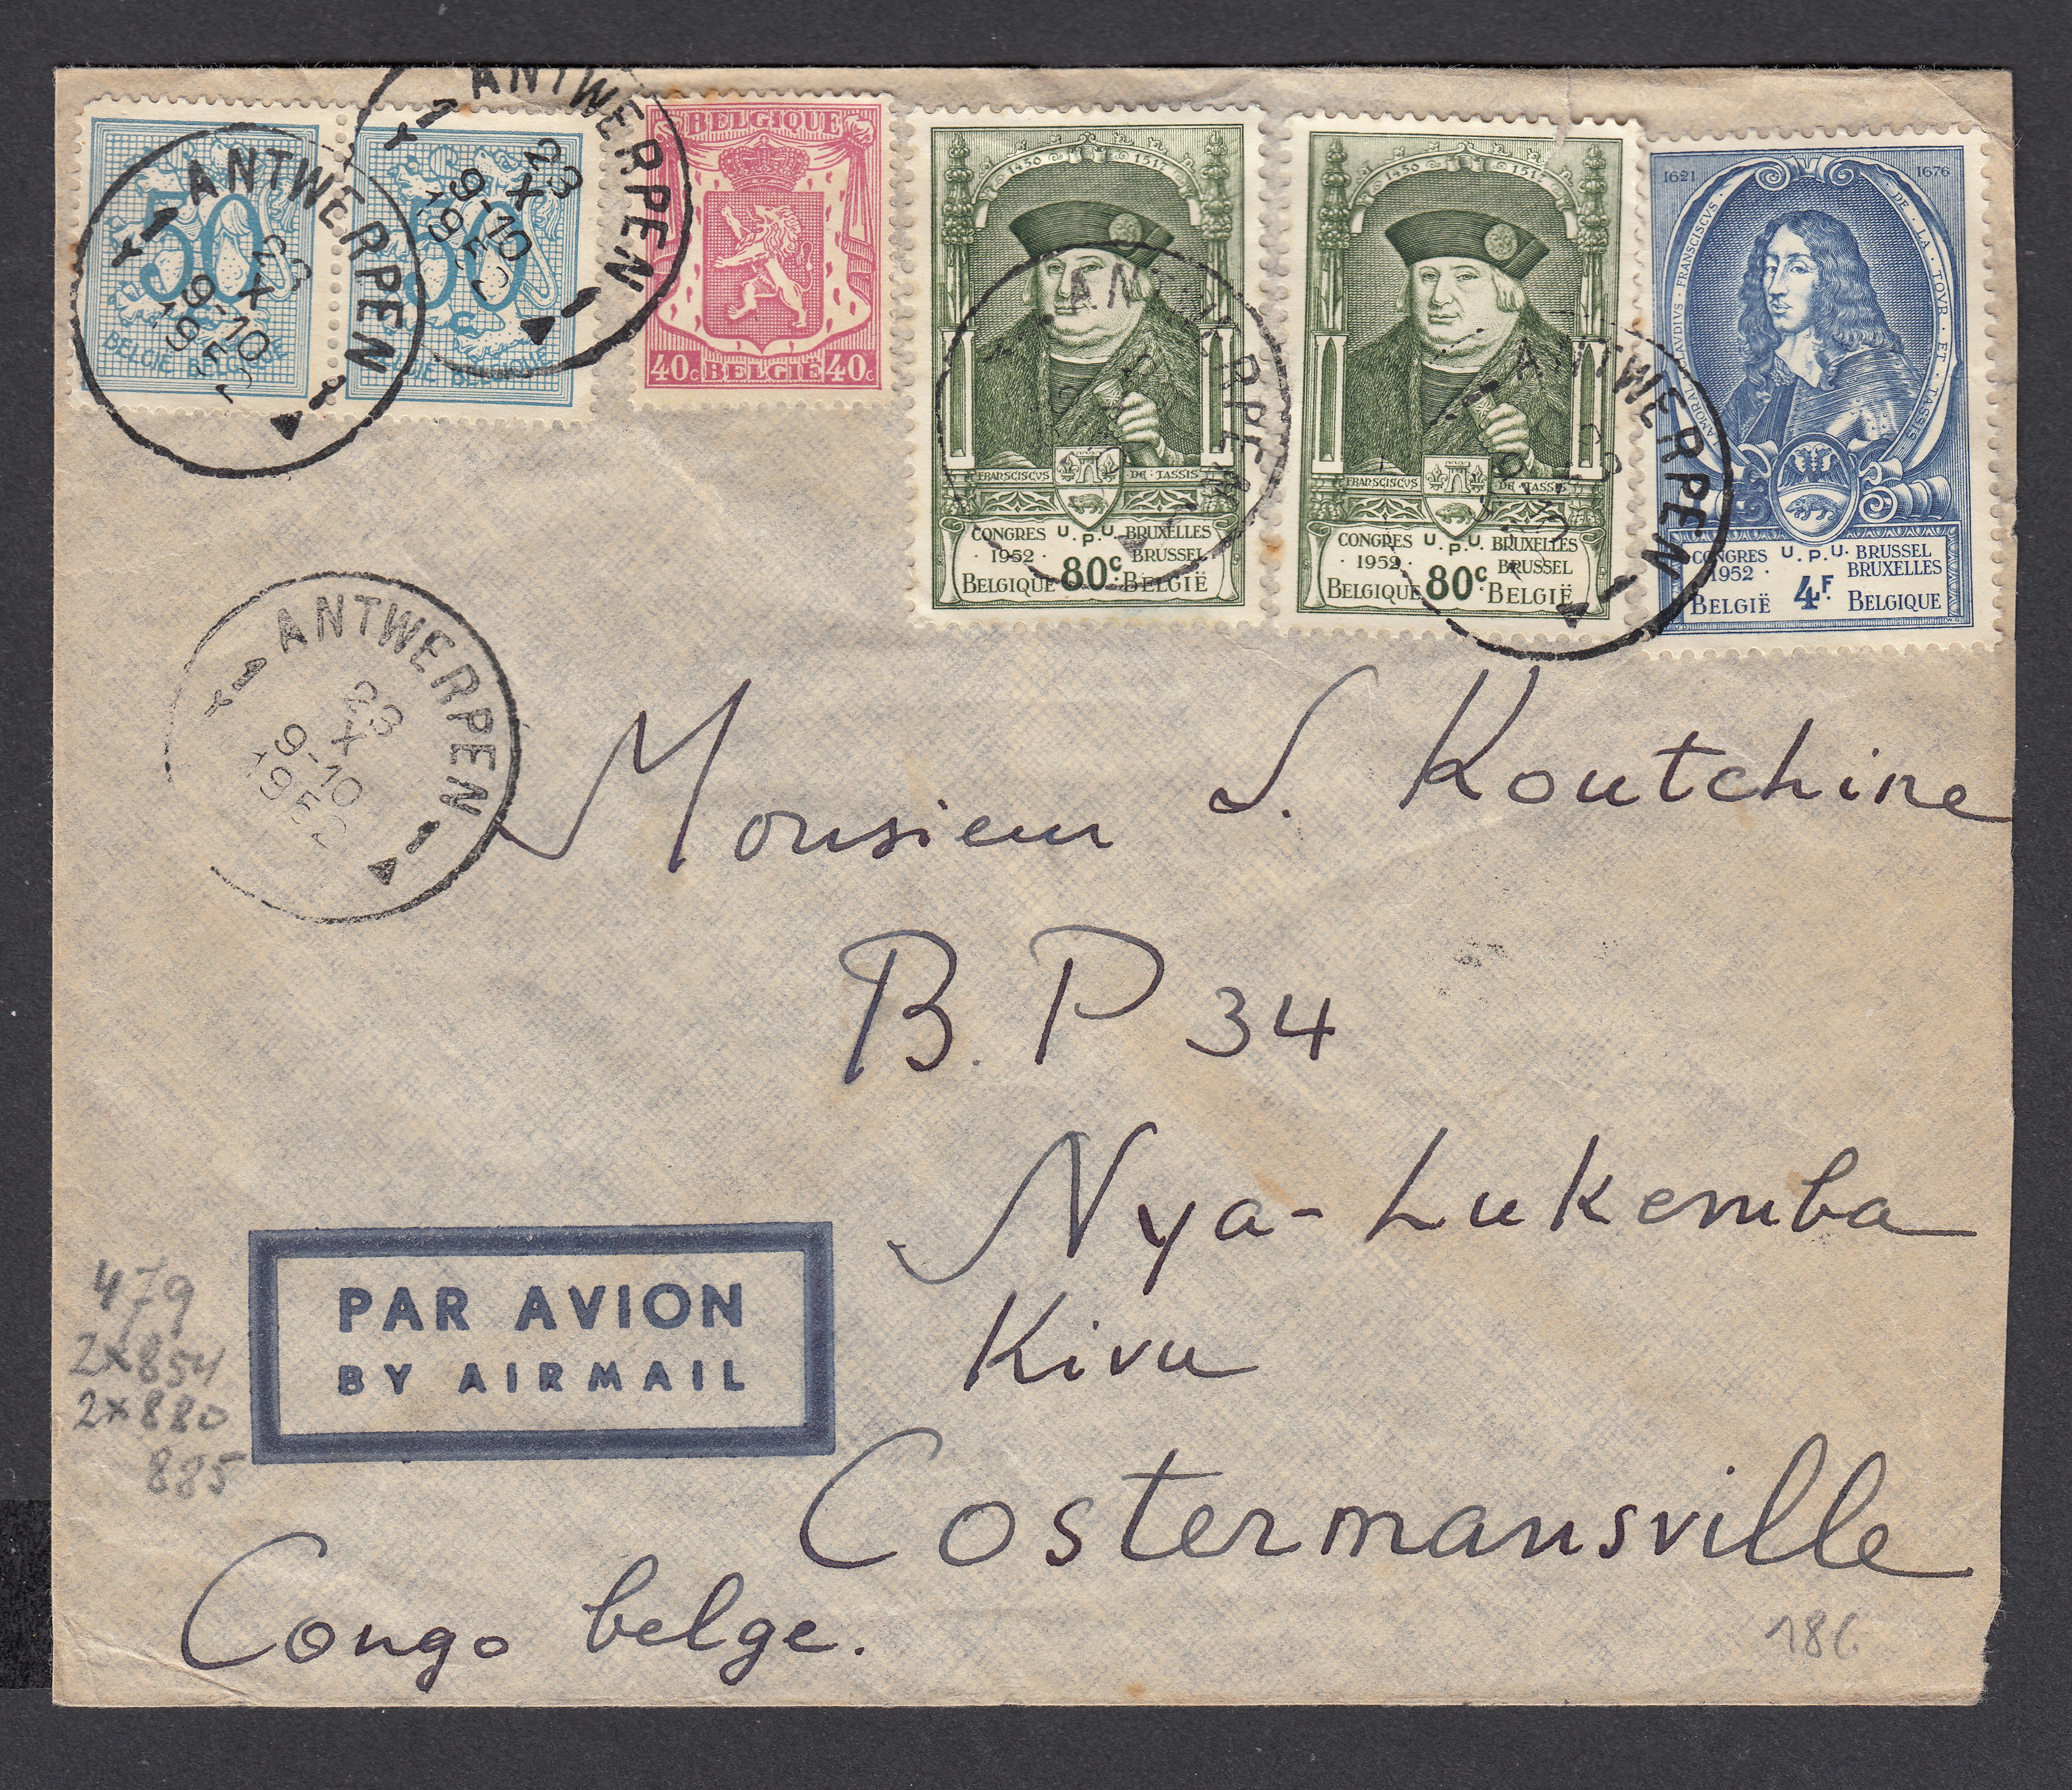 ANTWERPEN
1
23
X
9-10
1952
50
BELGIE BELGIQUE
ANTWERPEN
1
23
X
9-10
1952
50
BELGIE BELGIQUE
BELGIQUE
40c BELGIË 40c
1450 1517
FRANSCISCVS DE TASSIS
CONGRES U.P.U. BRUXELLES
1952 BRUSSEL
BELGIQUE 80c BELGIË
ANTWERPEN
1450 1517
FRANSCISCVS DE TASSIS
CONGRES U.P.U. BRUXELLES
1952 BRUSSEL
BELGIQUE 80c BELGIË
ANTWERPEN
1621 1676
LAMORAL CLAVDIVS FRANSCISCVS · DE · LA · TOVR · ET · TASSIS
CONGRES U.P.U. BRUSSEL
1952 BRUXELLES
BELGIË 4F BELGIQUE
ANTWERPEN
1
23
X
9-10
1952
Monsieur S. Koutchine
B.P 34
Nya-Lukemba
Kivu
Costermansville
Congo belge.
PAR AVION
BY AIRMAIL
479
2x854
2x880
885